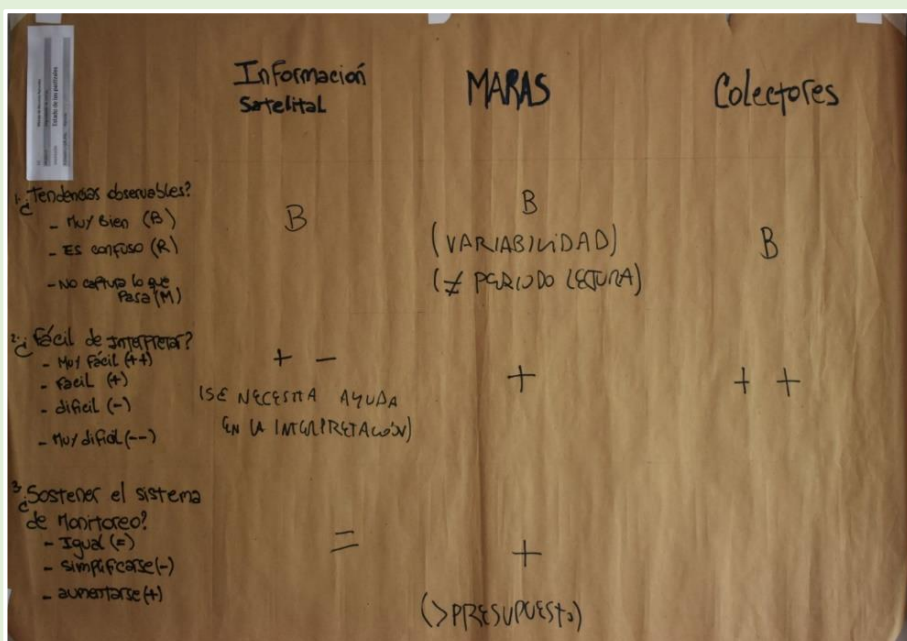 Estado de los pastizales
Información
Satelital
MARAS
Colectores
1. ¿Tendencias observables?
- Muy Bien (B)
- Es confuso (R)
- No captura lo que
Pasa (M)
B
B
(VARIABILIDAD)
(≠ PERIODO LECTURA)
B
2. ¿Fácil de Interpretar?
- Muy Fácil (++)
- Facil (+)
- dificil (-)
- Muy difícil (--)
+ -
(SE NECESITA AYUDA
EN LA INTERPRETACIÓN)
+
+ +
3. ¿Sostener el sistema
de Monitoreo?
- Igual (=)
- Simplificarse (-)
- aumentarse (+)
=
+
(>PRESUPUESTO)